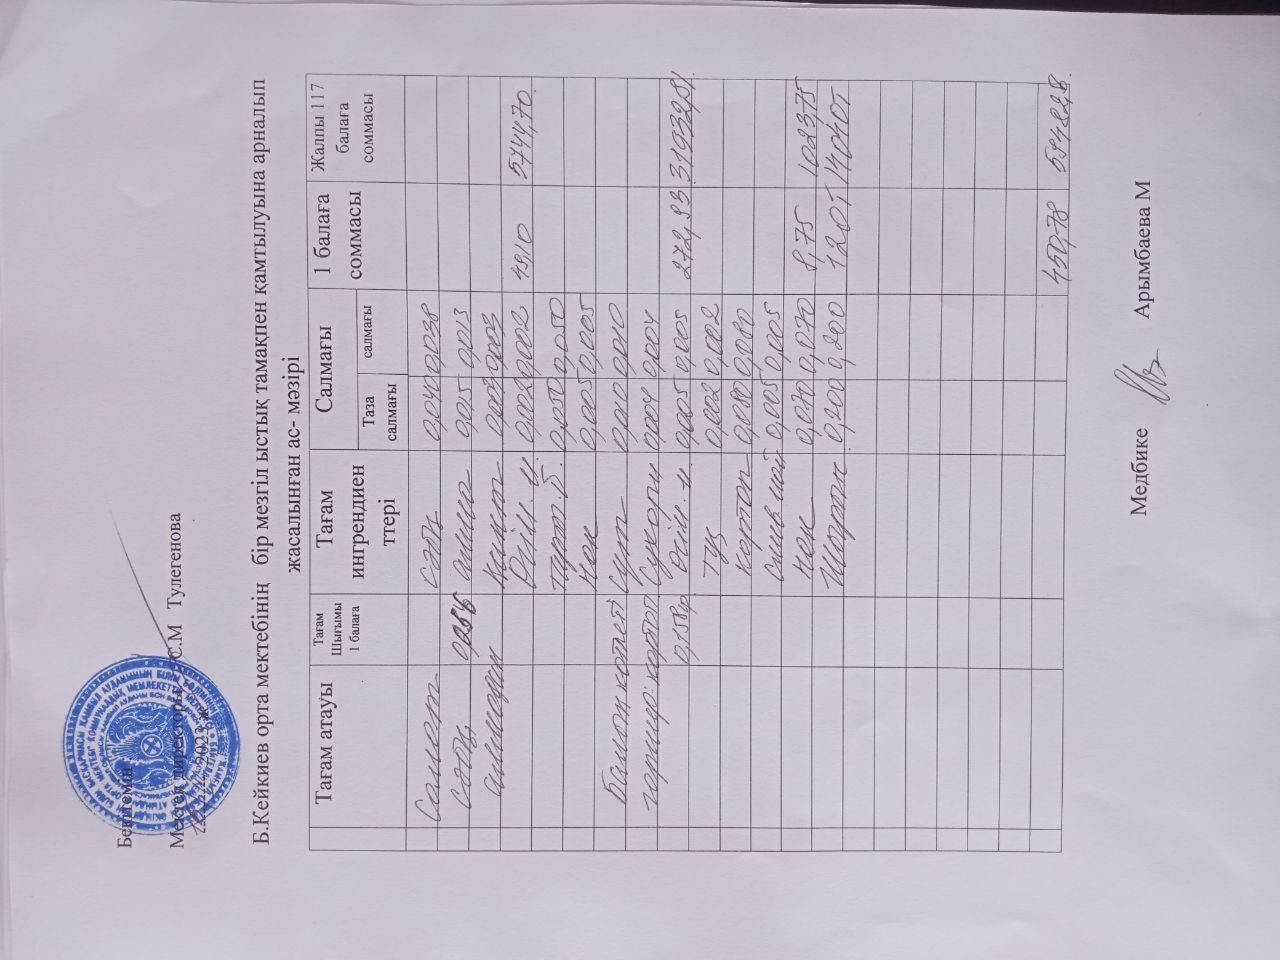 Бекітемін
Мектеп директоры С.М Тулегенова
2023 ж
Б.Кейкиев орта мектебінің бір мезгіл ыстық тамақпен қамтылуына арналып
жасалынған ас- мәзірі
Тағам атауы Тағам Шығымы 1 балаға Тағам ингрендиен ттері Салмағы 1 балаға соммасы Жалпы 117 балаға соммасы
Таза салмағы салмағы
Салат сәбіз 0,040 0,038
сәбіз алма 0,015 0,013
алмадан 0,003 0,003
Өсім. м 0,002 0,002 49,10 5744,70
0,050 0,050
Нан 0,005 0,005
Балық котлеті Сүт 0,010 0,010
гарнир: картоп Сухари 0,004 0,004
0,158гр Өсім. м. 0,005 0,005 272,93 31932,81
Тұз 0,002 0,002
Картоп 0,080 0,080
Слив май 0,005 0,005
Нан 0,070 0,070 8,75 1023,75
0,200 0,200 120т 14040т
450,78
Медбике Арымбаева М